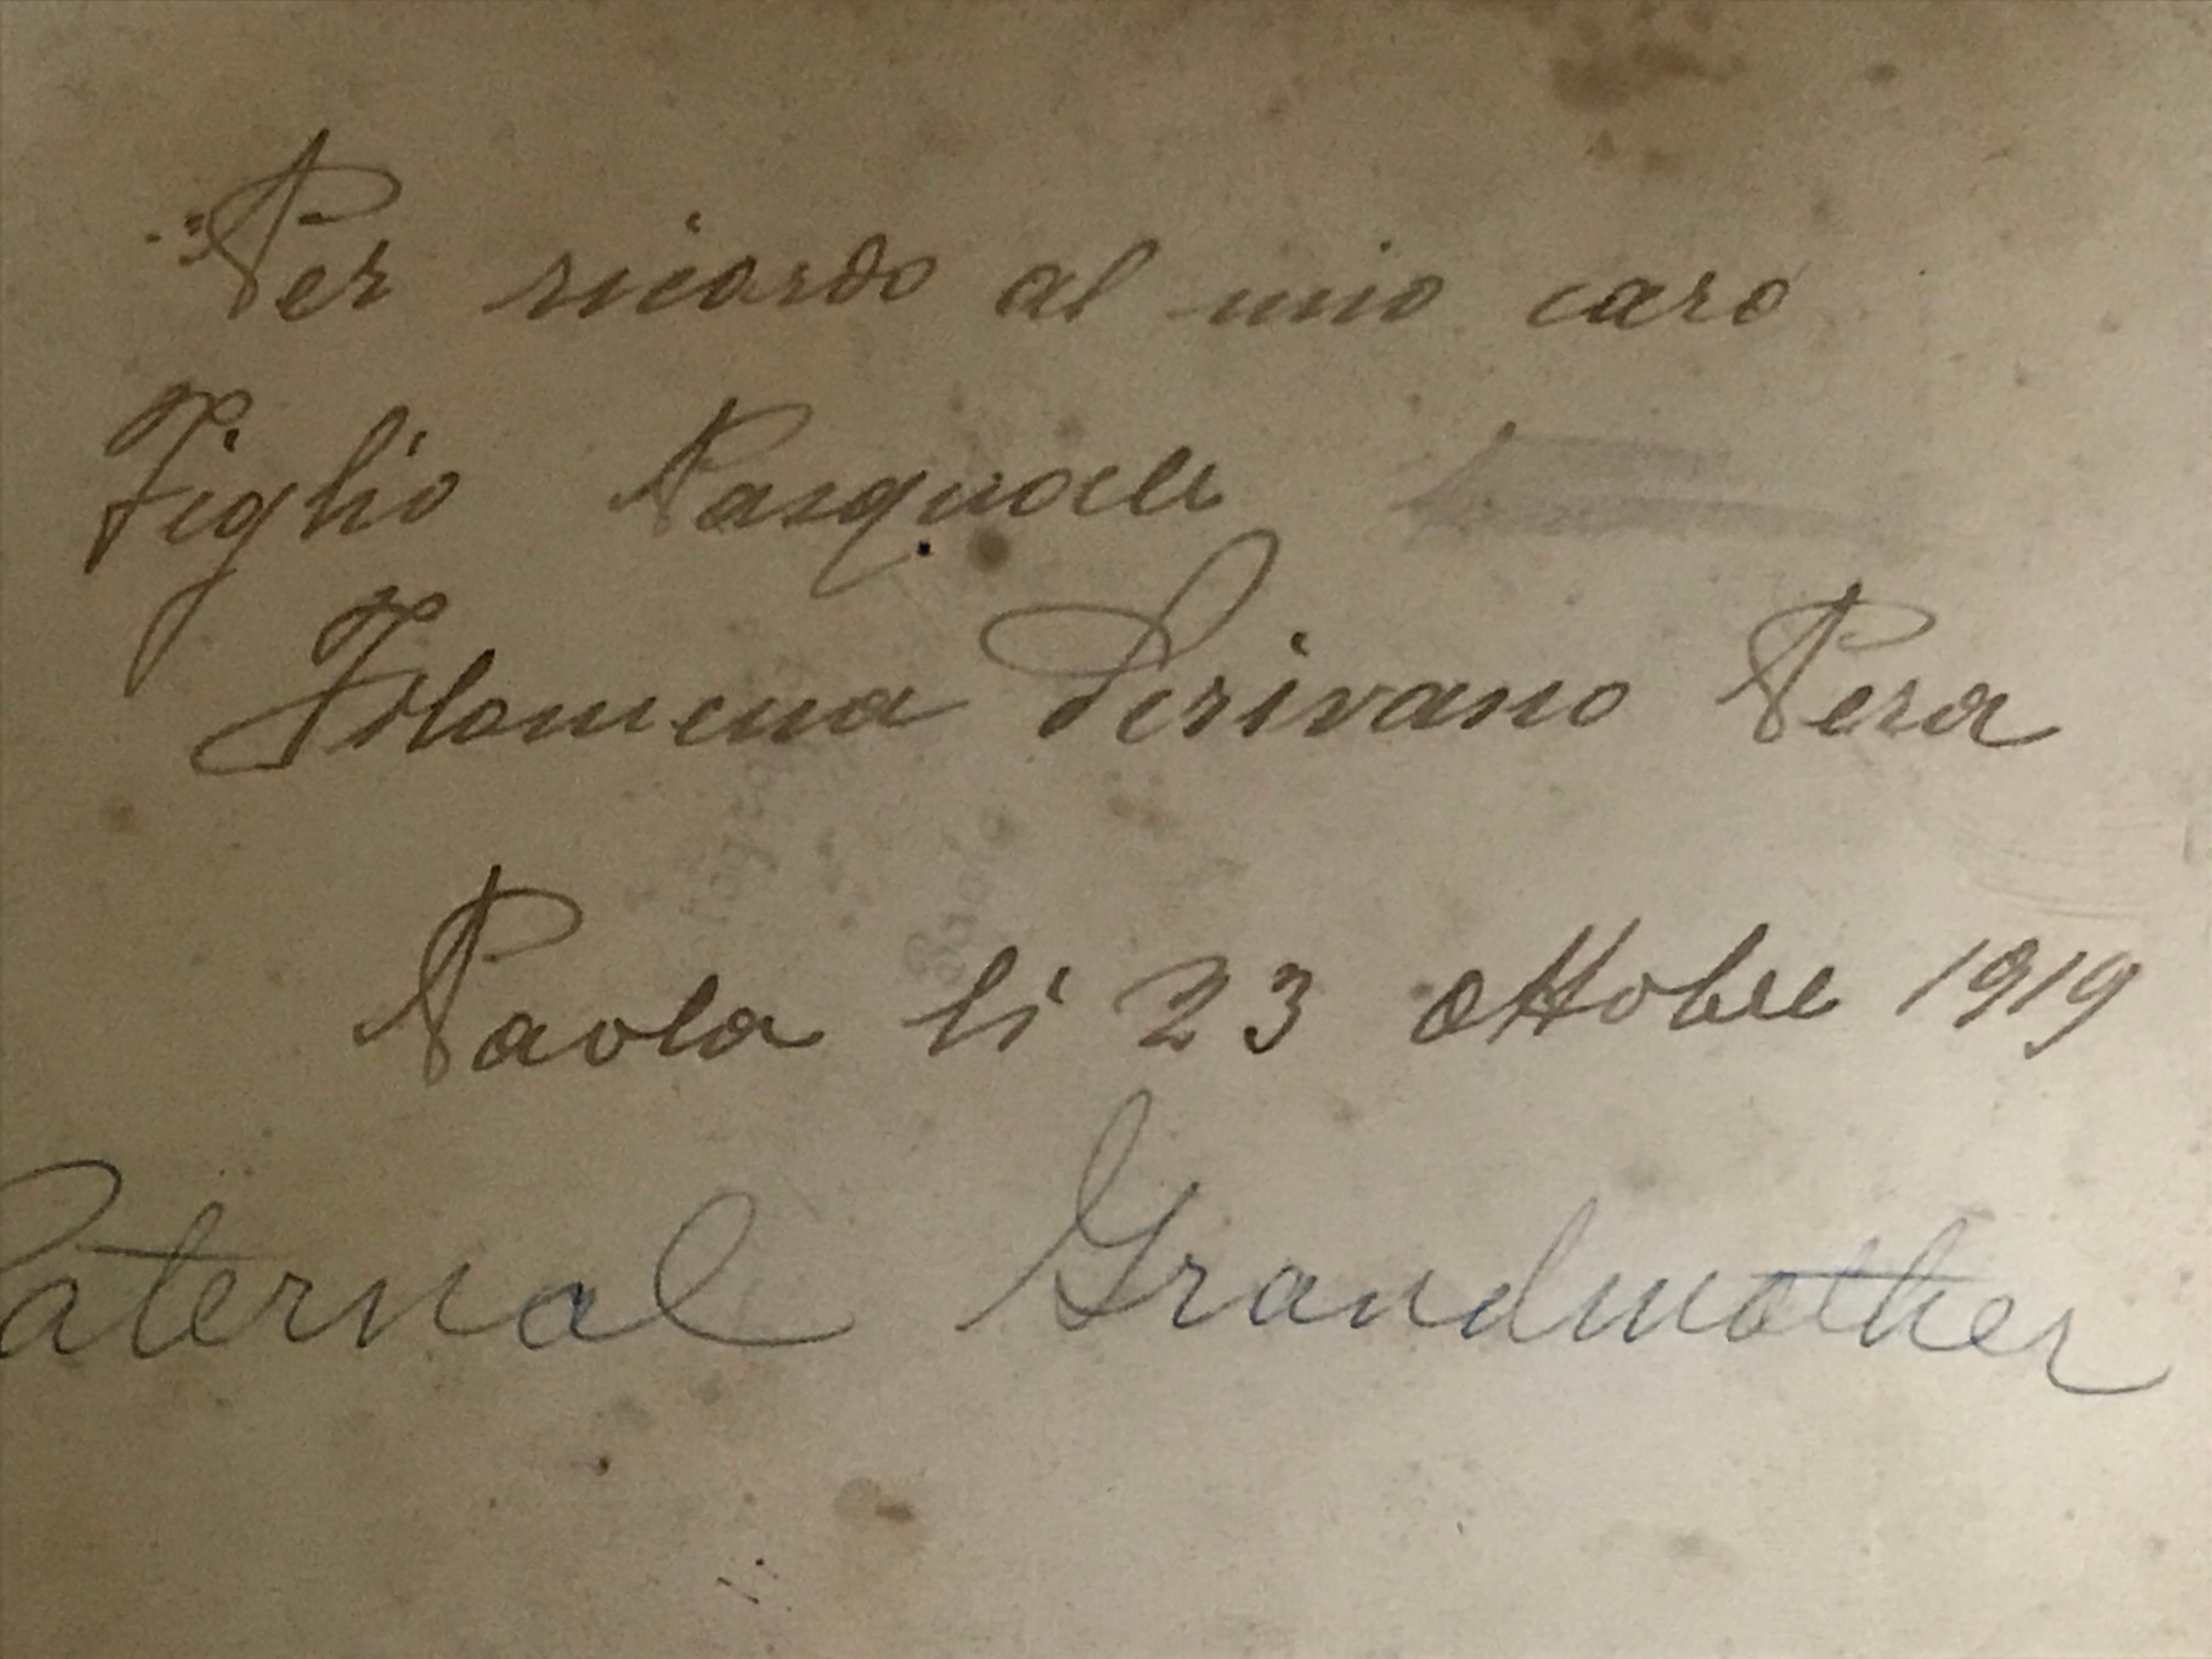 Per ricordo al mio caro
Figlio Pasquale
Filomena Scrivano Pera
Paola li 23 Ottobre 1919
Paternal Grandmother